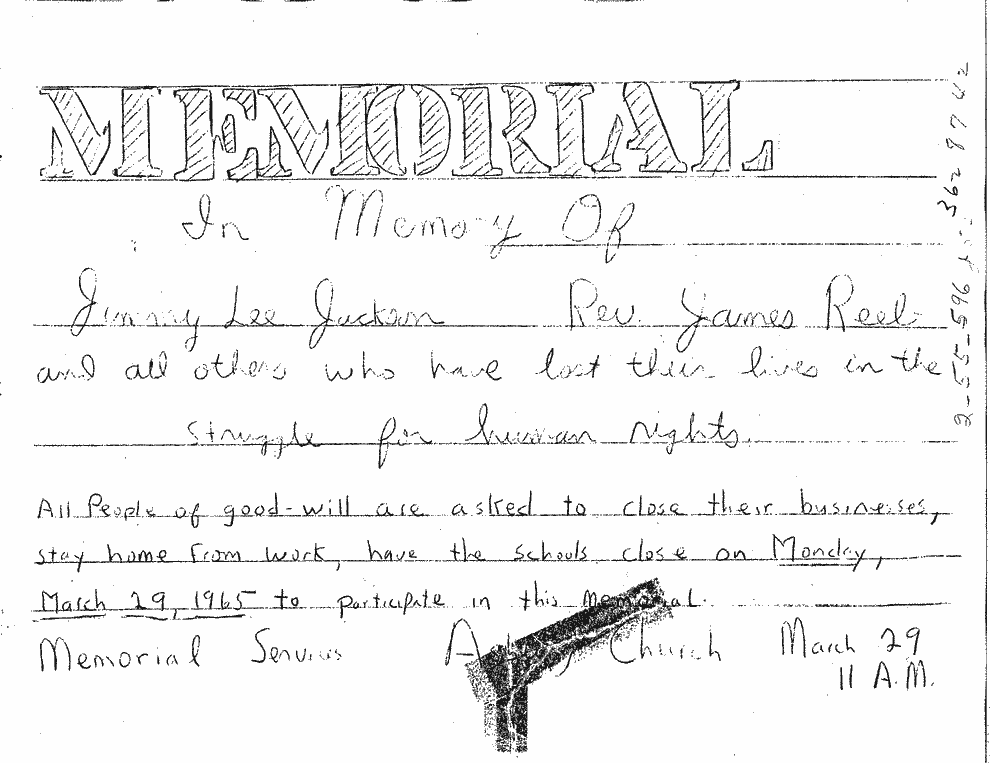 MEMORIAL
In Memory Of
Jimmy Lee Jackson Rev. James Reeb
and all others who have lost their lives in the
struggle for human rights.
All People of good-will are asked to close their businesses,
stay home from work, have the schools close on Monday,
March 29, 1965 to participate in this memorial.
Memorial Services Church March 29
11 A.M.
2-55-596 362 87 42